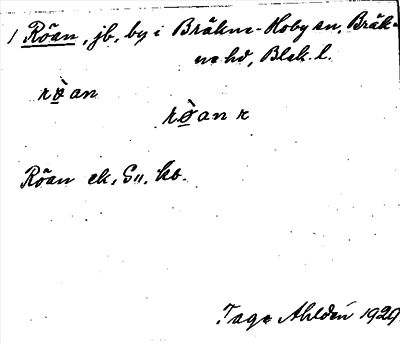 1 Röan, jb, by i Bräkne-Hoby sn, Bräk-
ne hd, Blek. l.
rø̀an
rø̀an r
Röan ek, G11, kb.
Tage Ahldén 1929